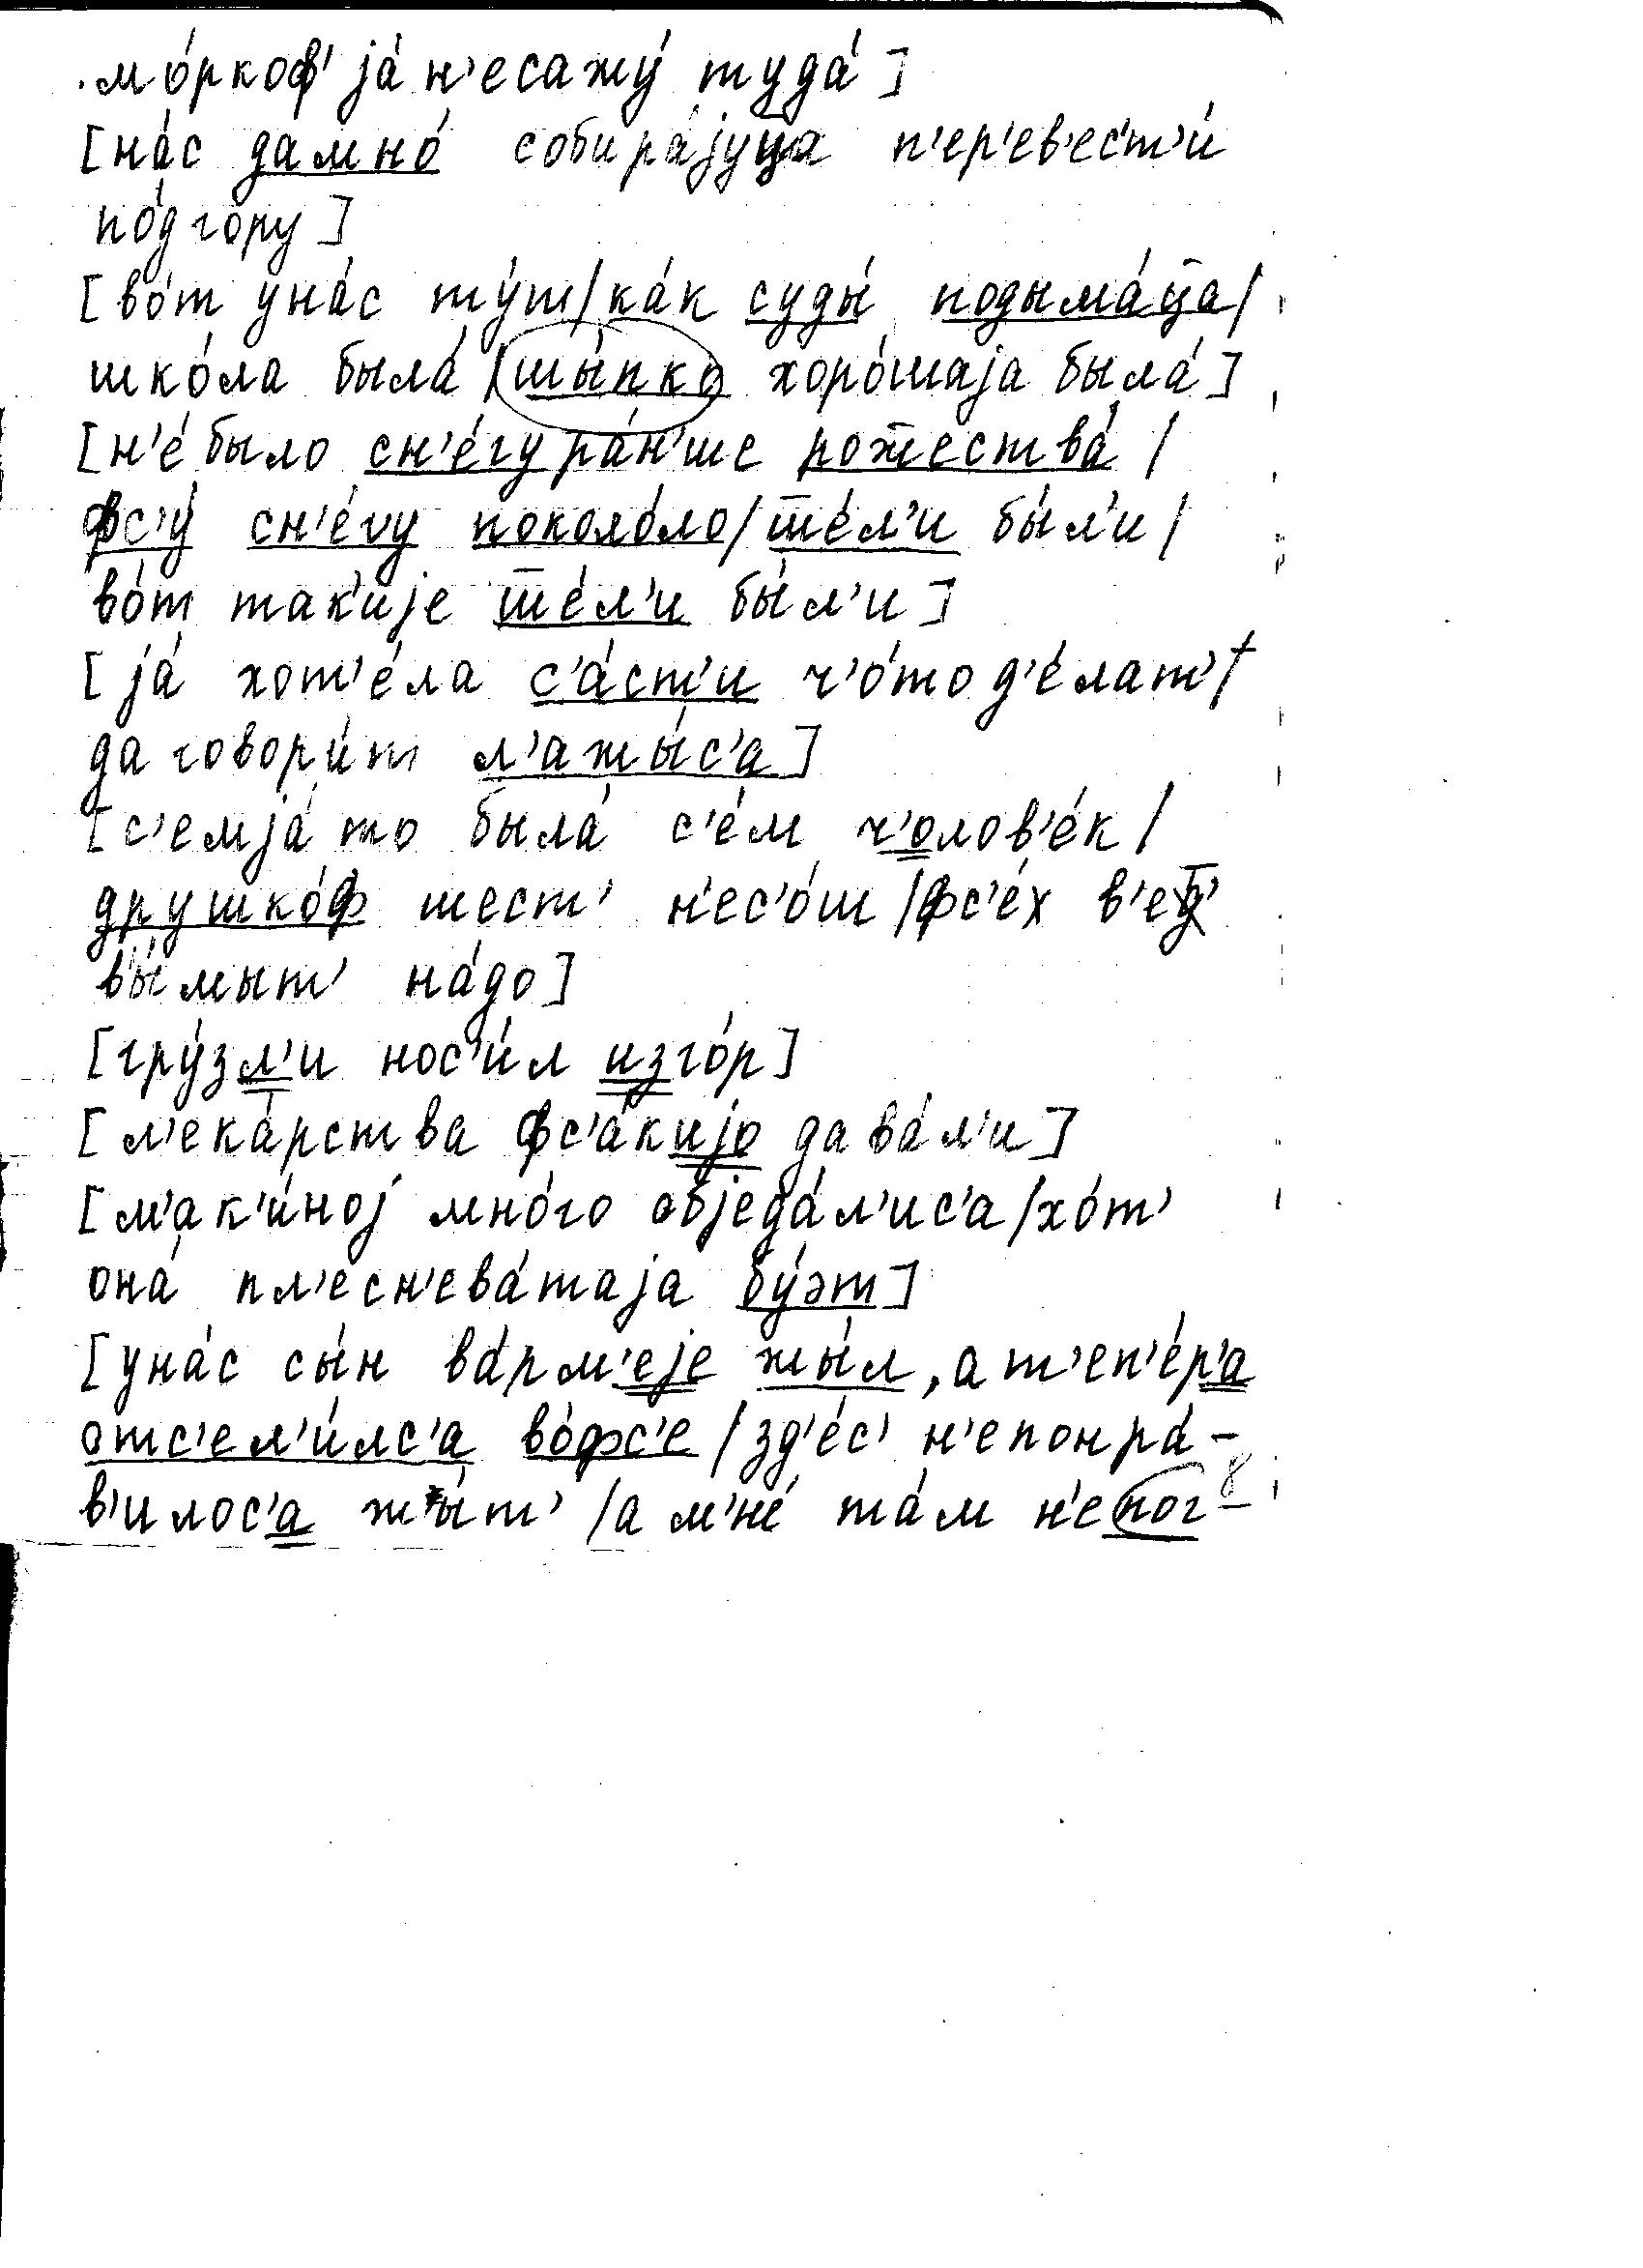 мо́ркоф' jа́ н'есажу́ туда́]
[на́с дамно́ собира́jуца п'ер'ев'ест'и́
по́дгору]
[во́т уна́с ту́т/ка́к суды́ подыма́ц̄а/
шко́ла была́/шы́пко хоро́шаjа была́]
[н'е́было сн'е́гу ра́н'ше рож̄ества́/
фс'у́ сн'е́гу поколо́ло/ш̄е́л'и бы́л'и/
во́т так'иjе ш̄е́л'и бы́л'и]
[jа́ хот'е́ла с'а́ст'и ч'о́то д'е́лат'/
да говори́т л'ажы́с'а]
[с'емjа́то была́ с'е́м ч'олов'е́к/
друшко́ф шест' н'ес'о́ш/фс'е́х в'ет̄'
вы́мыт' на́до]
[гру́зл'и нос'и́л изго́р]
[л'ека́рства фс'а́киjо дава́л'и]
[м'ак'и́ноj мно́го обjеда́л'ис'а/хо́т'
она́ пл'есн'ева́таjа бу́эт]
[уна́с сы́н ва́рм'еjе жы́л, а т'еп'е́р'а
отс'ел'и́лс'а во́фс'е/зд'е́с' н'епонра́-
в'илос'а жы́т'/а м'не́ та́м н'епог-